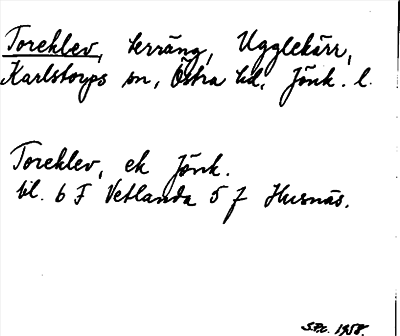 Toreklev, terräng, Ugglekärr,
Karlstorps sn, Östra hd, Jönk. l.
Toreklev, ek Jönk.
bl. 6 F Vetlanda 5 f Husnäs.
1958.